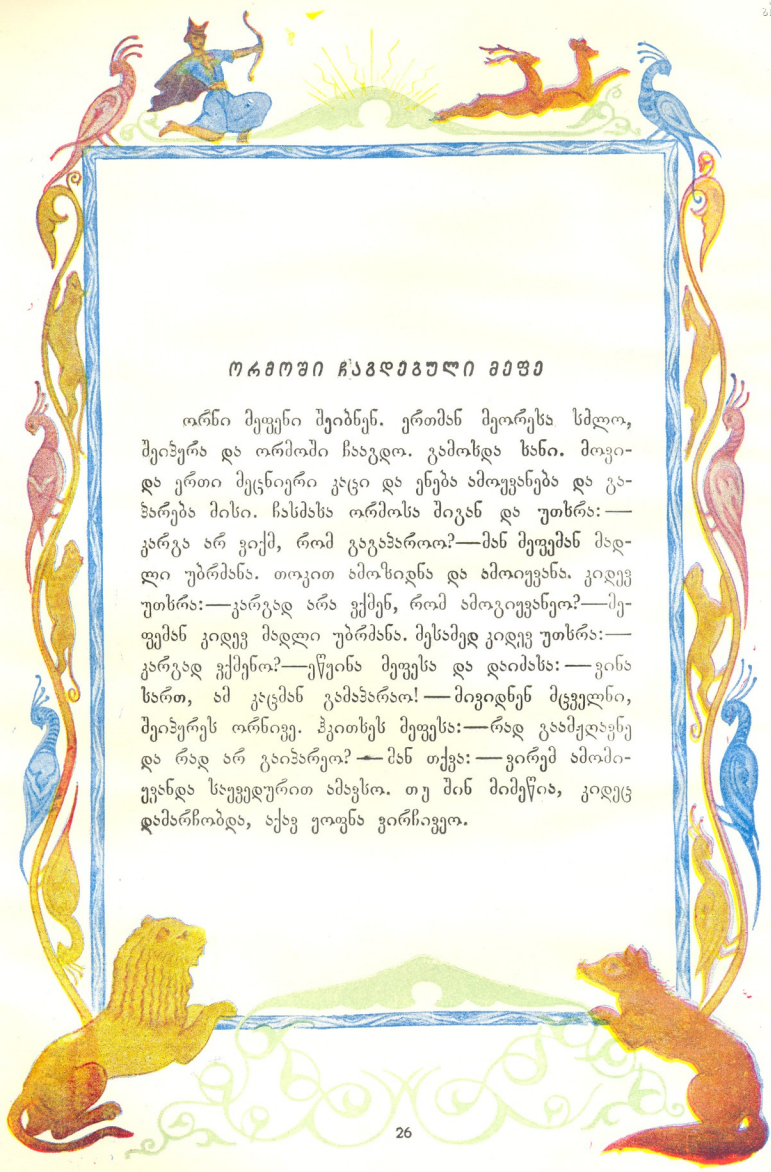 ორმოში ჩაგდებული მეფე
ორნი მეფენი შეიბნენ. ერთმან მეორესა სძლო,
შეიპყრა და ორმოში ჩააგდო. გამოხდა ხანი. მოვი-
და ერთი მეცნიერი კაცი და ენება ამოყვანება და გა-
პარება მისი. ჩასძახა ორმოსა შიგან და უთხრა:—
კარგა არ ვიქმ, რომ გაგაპაროო?—მან მეფემან მად-
ლი უბრძანა. თოკით ამოზიდნა და ამოიყვანა. კიდევ
უთხრა:—კარგად არა ვქმენ, რომ ამოგიყვანეო?—მე-
ფემან კიდევ მადლი უბრძანა. მესამედ კიდევ უთხრა:—
კარგად ვქმენო?—ეწყინა მეფესა და დაიძახა:—ვინა
ხართ, ამ კაცმან გამაპარაო!—მივიდნენ მცველნი,
შეიპყრეს ორნივე. ჰკითხეს მეფესა:—რად გაამჟღავნე
და რად არ გაიპარეო?—მან თქვა:—ვირემ ამომი-
ყვანდა საყვედურით ამავსო. თუ შინ მიმეწია, კიდეც
დამარჩობდა, აქავ ყოფნა ვირჩივეო.
26